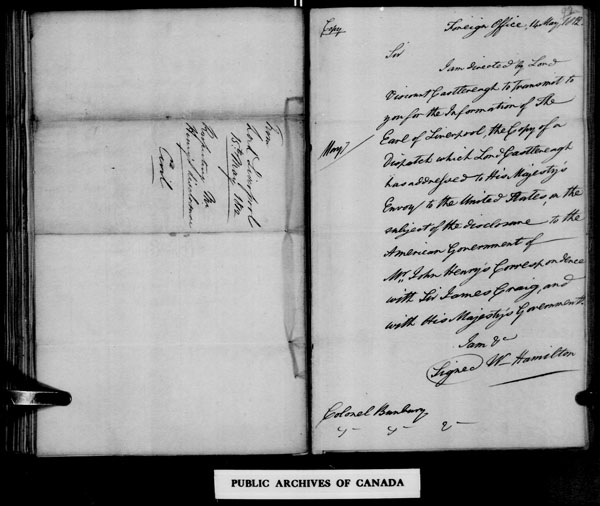 from
Lord Liverpool
15th May 1812
Respecting Mr
Henry's
Copy
Foreign Office, 14 May 1812
Sir
I am directed by Lord
Viscount Castlereagh to Transmit to
you for the Information of The
Earl of Liverpool, the Copy of a
Dispatch which Lord Castlereagh
has addressed to His Majesty's
Envoy to the United States, on the
subject of the disclosure to the
American Government of
Mr. John Henry's Correspondence
with Sir James Craig, and
with His Majesty's Government.
I am &c
Signed Wm Hamilton
Colonel Bunbury
PUBLIC ARCHIVES OF CANADA